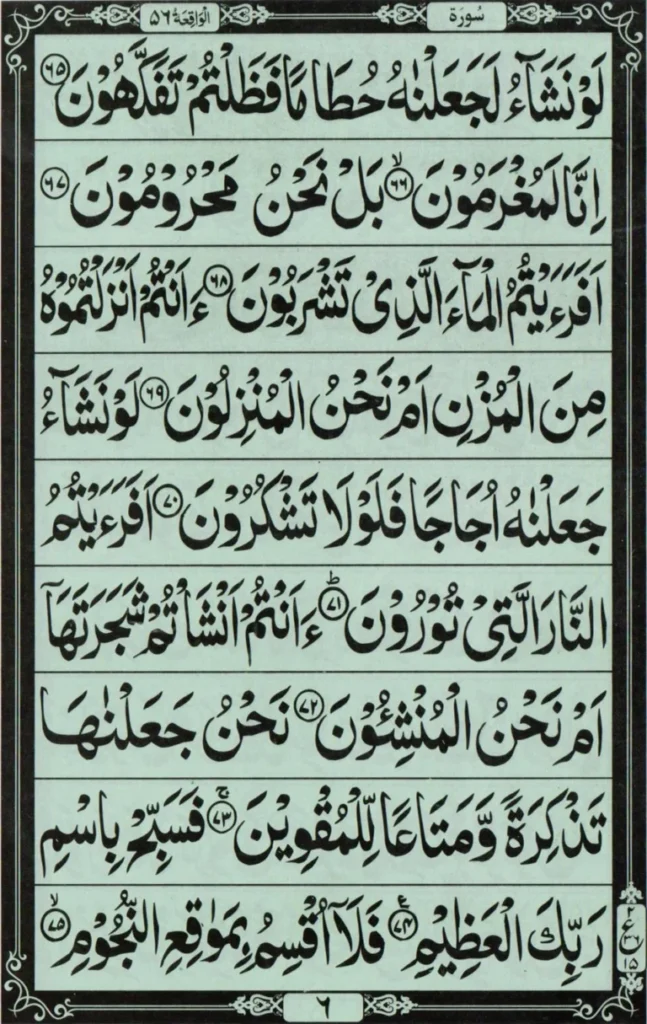 سُورَة
الْوَاقِعَة ٥٦
لَوْ نَشَآءُ لَجَعَلْنٰهُ حُطَامًا فَظَلْتُمْ تَفَكَّهُوْنَ ٦٥
اِنَّا لَمُغْرَمُوْنَ ٦٦ۙ بَلْ نَحْنُ مَحْرُوْمُوْنَ ٦٧
اَفَرَءَيْتُمُ الْمَآءَ الَّذِىْ تَشْرَبُوْنَ ٦٨ ءَاَنْتُمْ اَنْزَلْتُمُوْهُ
مِنَ الْمُزْنِ اَمْ نَحْنُ الْمُنْزِلُوْنَ ٦٩ لَوْ نَشَآءُ
جَعَلْنٰهُ اُجَاجًا فَلَوْلَا تَشْكُرُوْنَ ٧٠ اَفَرَءَيْتُمُ
النَّارَ الَّتِىْ تُوْرُوْنَ ٧١ؕ ءَاَنْتُمْ اَنْشَاْتُمْ شَجَرَتَهَا
اَمْ نَحْنُ الْمُنْشِئُوْنَ ٧٢ نَحْنُ جَعَلْنٰهَا
تَذْكِرَةً وَّمَتَاعًا لِّلْمُقْوِيْنَ ٧٣ۚ فَسَبِّحْ بِاسْمِ
رَبِّكَ الْعَظِيْمِ ٧٤ع فَلَآ اُقْسِمُ بِمَوٰقِعِ النُّجُوْمِ ٧٥ۙ
٢
ع
٣٦
١٥
٦